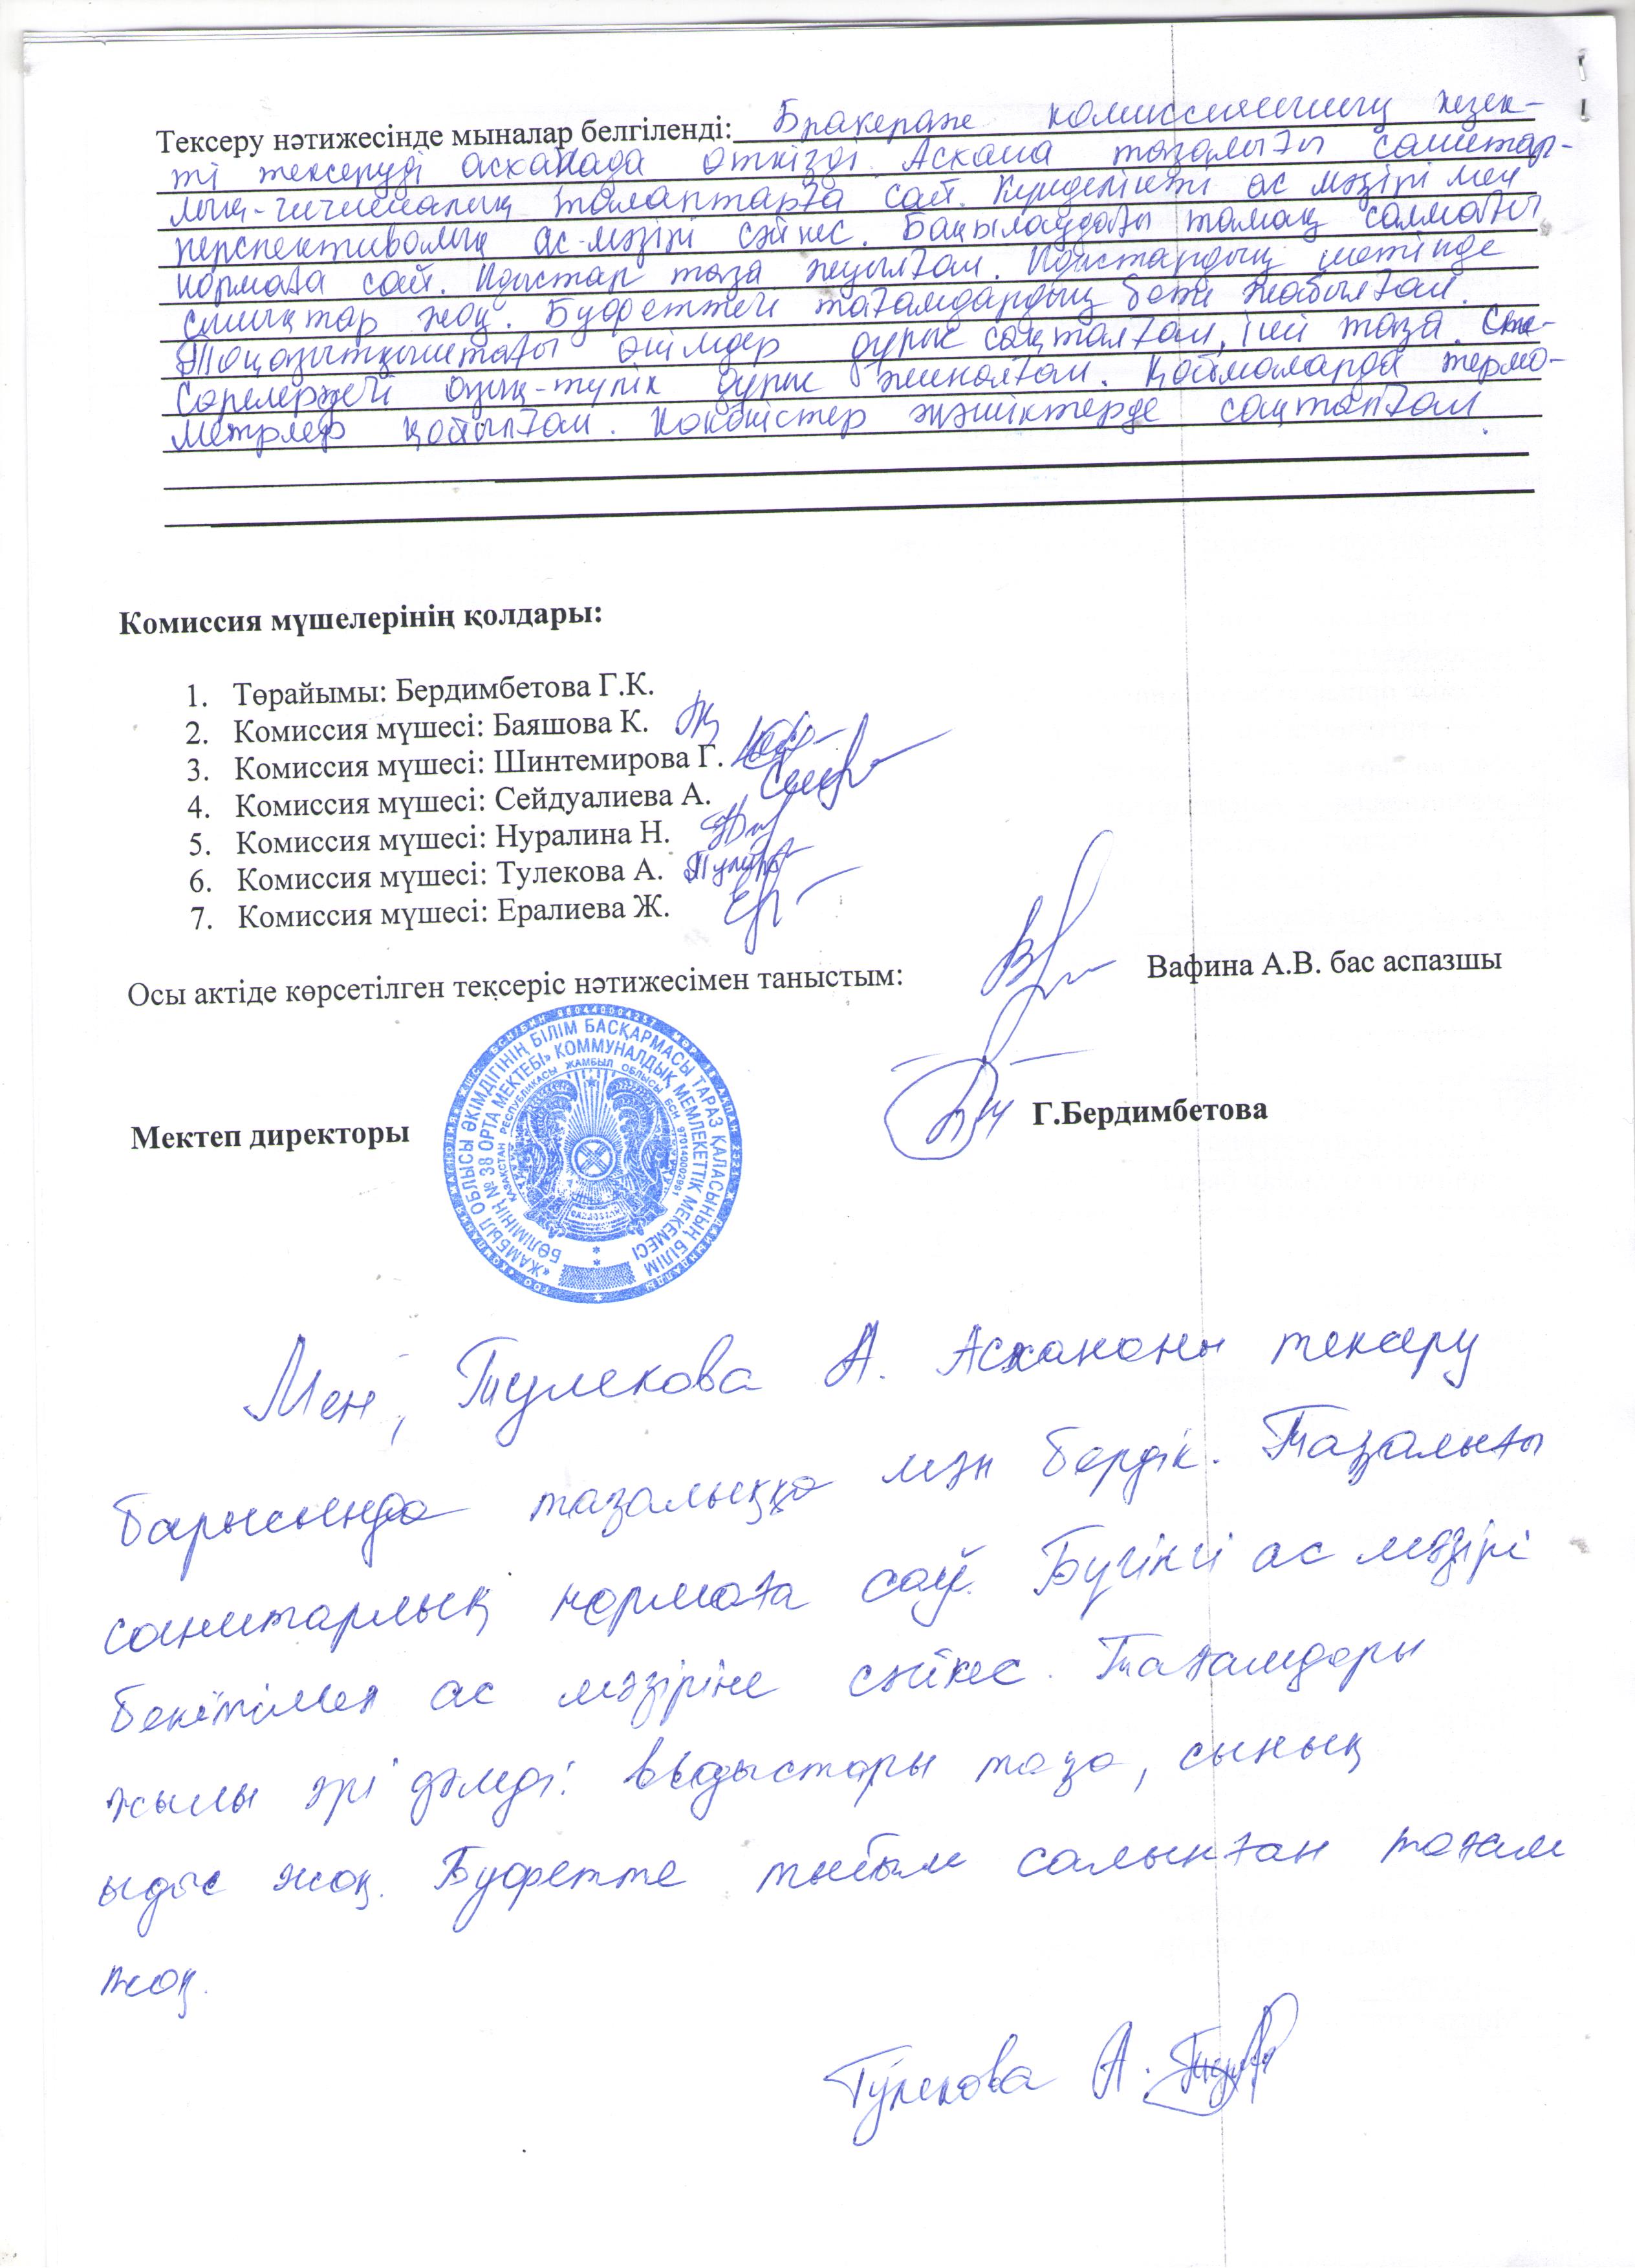 Тексеру нәтижесінде мыналар белгіленді: Бракераж комиссиясының кезек-
ті тексеруді асханада өткізді. Асхана тазалығы санитар-
лық-гигиеналық талаптарға сай. Күнделікті ас мәзірі мен
перспективалық ас-мәзірі сәйкес. Бақылаудағы тамақ салмағы
нормаға сай. Ыдыстар таза жуылған. Ыдыстардың шетінде
сынықтар жоқ. Буфеттегі тағамдардың беті жабылған.
Тоңазытқыштағы өнімдер дұрыс сақталған, іші таза.
Сөрелердегі азық-түлік дұрыс жиналған. Қоймаларда термо-
метрлер қойылған. Көкөністер жәшіктерде сақталған.
Комиссия мүшелерінің қолдары:
1. Төрайымы: Бердимбетова Г.К.
2. Комиссия мүшесі: Баяшова К.
3. Комиссия мүшесі: Шинтемирова Г.
4. Комиссия мүшесі: Сейдуалиева А.
5. Комиссия мүшесі: Нуралина Н.
6. Комиссия мүшесі: Тулекова А.
7. Комиссия мүшесі: Ералиева Ж.
Осы актіде көрсетілген тексеріс нәтижесімен таныстым: Вафина А.В. бас аспазшы
«ЖАМБЫЛ ОБЛЫСЫ ӘКІМДІГІНІҢ БІЛІМ БАСҚАРМАСЫ ТАРАЗ ҚАЛАСЫНЫҢ БІЛІМ
БӨЛІМІНІҢ № 38 ОРТА МЕКТЕБІ» КОММУНАЛДЫҚ МЕМЛЕКЕТТІК МЕКЕМЕСІ
ҚАЗАҚСТАН РЕСПУБЛИКАСЫ ЖАМБЫЛ ОБЛЫСЫ БСН
Мектеп директоры Г.Бердимбетова
Мен, Тулекова А. Асхананы тексеру
барысында тазалыққа мән бердік. Тазалығы
санитарлық нормаға сай. Бүгінгі ас мәзірі
бекітілген ас мәзіріне сәйкес. Тағамдары
жылы әрі дәмді. ыдыстары таза, сынық
ыдыс жоқ. Буфетте тыйым салынған тағам
жоқ.
Тулекова А.